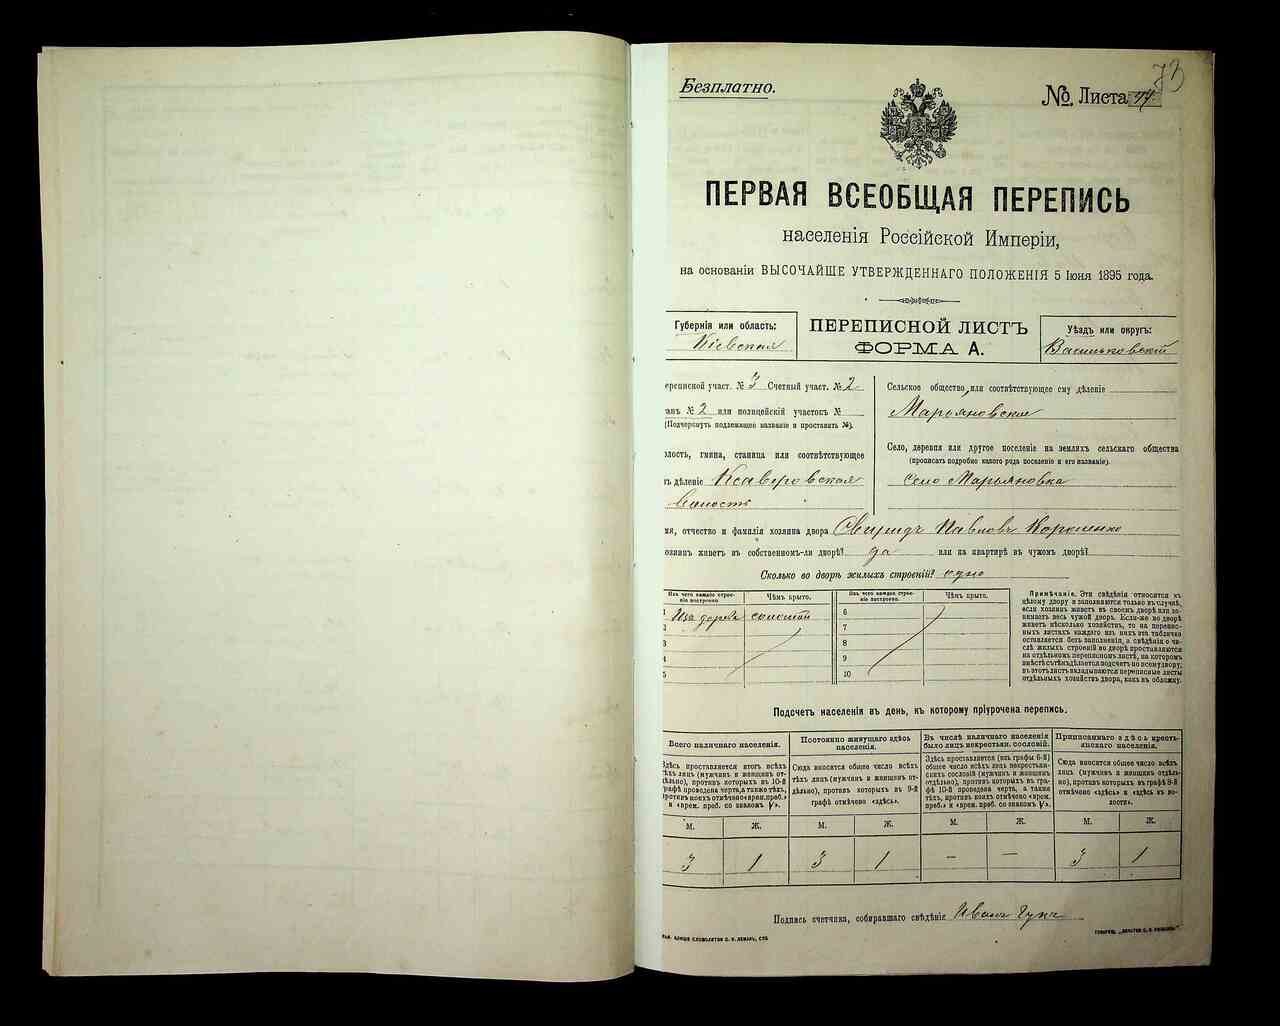 Безплатно.
№ Листа 44.
73
ПЕРВАЯ ВСЕОБЩАЯ ПЕРЕПИСЬ
населенія Россійской Имперіи,
на основаніи ВЫСОЧАЙШЕ УТВЕРЖДЕННАГО ПОЛОЖЕНІЯ 5 Іюня 1895 года.
Губернія или область:
Кіевская
ПЕРЕПИСНОЙ ЛИСТЪ
ФОРМА А.
Уѣздъ или округъ:
Васильковскій
ереписной участ. № 3 Счетный участ. № 2
анъ № 2 или полицейскій участокъ №
(Подчеркнуть подлежащее названіе и проставить №).
олость, гмина, станица или соотвѣтствующее
ъ дѣленіе Ксаверовская
волость
Сельское общество, или соотвѣтствующее ему дѣленіе
Марьяновское
Село, деревня или другое поселеніе на земляхъ сельскаго общества
(прописать подробно какого рода поселеніе и его названіе).
Село Марьяновка
мя, отчество и фамилія хозяина двора Свиридъ Павловъ Короленко
озяинъ живетъ въ собственномъ-ли дворѣ? да или на квартирѣ въ чужомъ дворѣ?
Сколько во дворѣ жилыхъ строеній? одно
Изъ чего каждое строеніе построено.
Чѣмъ крыто.
Изъ чего каждое строеніе построено.
Чѣмъ крыто.
1 Изъ дерева соломой
2
3
4
5
6
7
8
9
10
Примѣчаніе. Эти свѣдѣнія относятся къ
цѣлому двору и заполняются только въ случаѣ,
если хозяинъ живетъ въ своемъ дворѣ или занимаетъ
весь чужой дворъ. Если-же во дворѣ
живетъ нѣсколько хозяйствъ, то на переписныхъ
листахъ каждаго изъ нихъ эта табличка
оставляется безъ заполненія, а свѣдѣнія о числѣ
жилыхъ строеній во дворѣ проставляются
на отдѣльномъ переписномъ листѣ, на которомъ
вмѣстѣ съ тѣмъ дѣлается подсчетъ по всему двору;
въ этотъ листъ вкладываются переписные листы
отдѣльныхъ хозяйствъ двора, какъ въ обложку.
Подсчетъ населенія въ день, къ которому пріурочена перепись.
Всего наличнаго населенія.
Постоянно живущаго здѣсь
населенія.
Въ числѣ наличнаго населенія
было лицъ некрестьян. сословій.
Приписаннаго здѣсь крестьянскаго
населенія.
Здѣсь проставляется итогъ всѣхъ
тѣхъ лицъ (мужчинъ и женщинъ отдѣльно),
противъ которыхъ въ 10-й
графѣ проведена черта, а также тѣхъ,
противъ коихъ отмѣчено «врем. преб.»
и «врем. преб. со знакомъ V».
Сюда вносится общее число всѣхъ
тѣхъ лицъ (мужчинъ и женщинъ отдѣльно),
противъ которыхъ въ 9-й
графѣ отмѣчено «здѣсь».
Здѣсь проставляется (изъ графы 6-й)
общее число всѣхъ лицъ некрестьянскихъ
сословій (мужчинъ и женщинъ
отдѣльно), противъ которыхъ въ графѣ
10-й проведена черта, а также
тѣхъ, противъ коихъ отмѣчено «врем.
преб.» и «врем. преб. со знакомъ V».
Сюда вносится общее число всѣхъ
лицъ (мужчинъ и женщинъ отдѣльно),
противъ которыхъ въ графѣ 8-й
отмѣчено «здѣсь» и «здѣсь въ волости».
М. Ж. М. Ж. М. Ж. М. Ж.
3 1 3 1 — — 3 1
Подпись счетчика, собиравшаго свѣдѣнія Иванъ